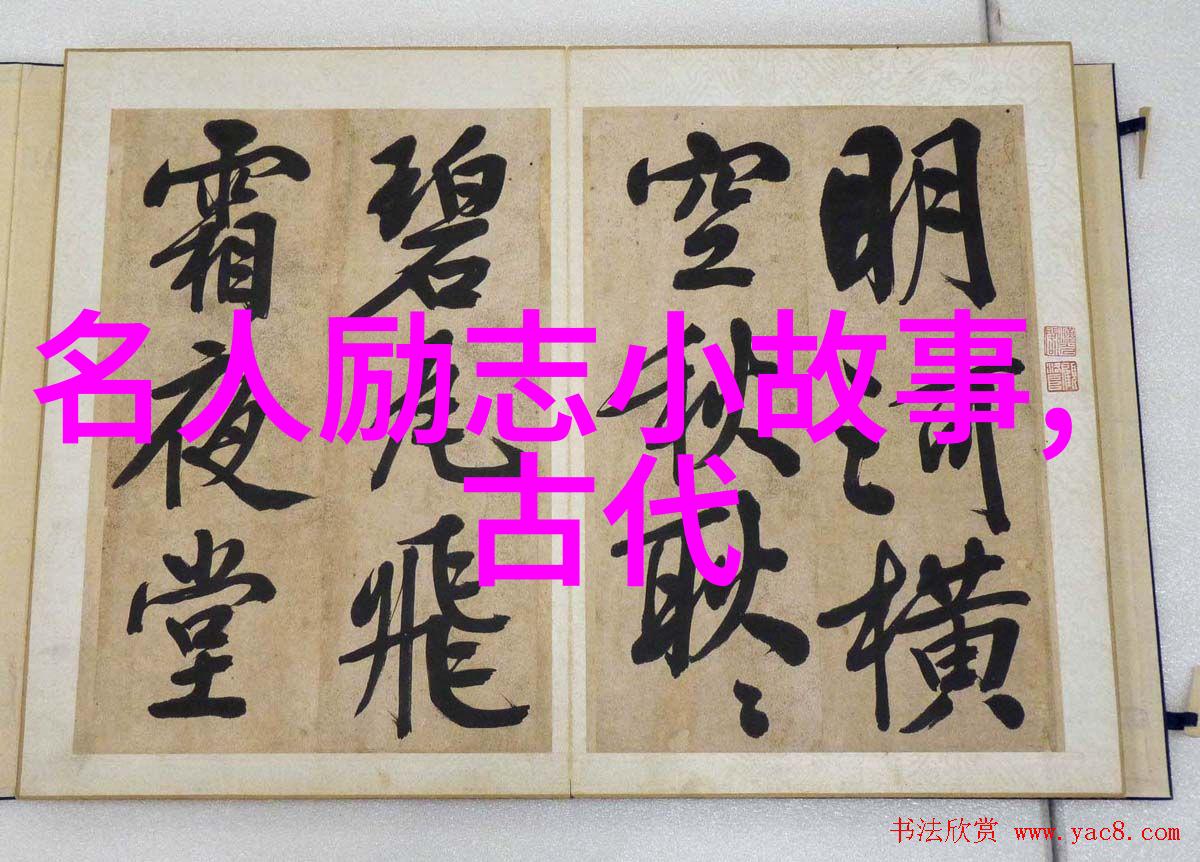 明河横
空秋耿〻
碧瓦飛
霜夜堂
名人励志小故事,
古代
书法欣赏 www.yac8.com